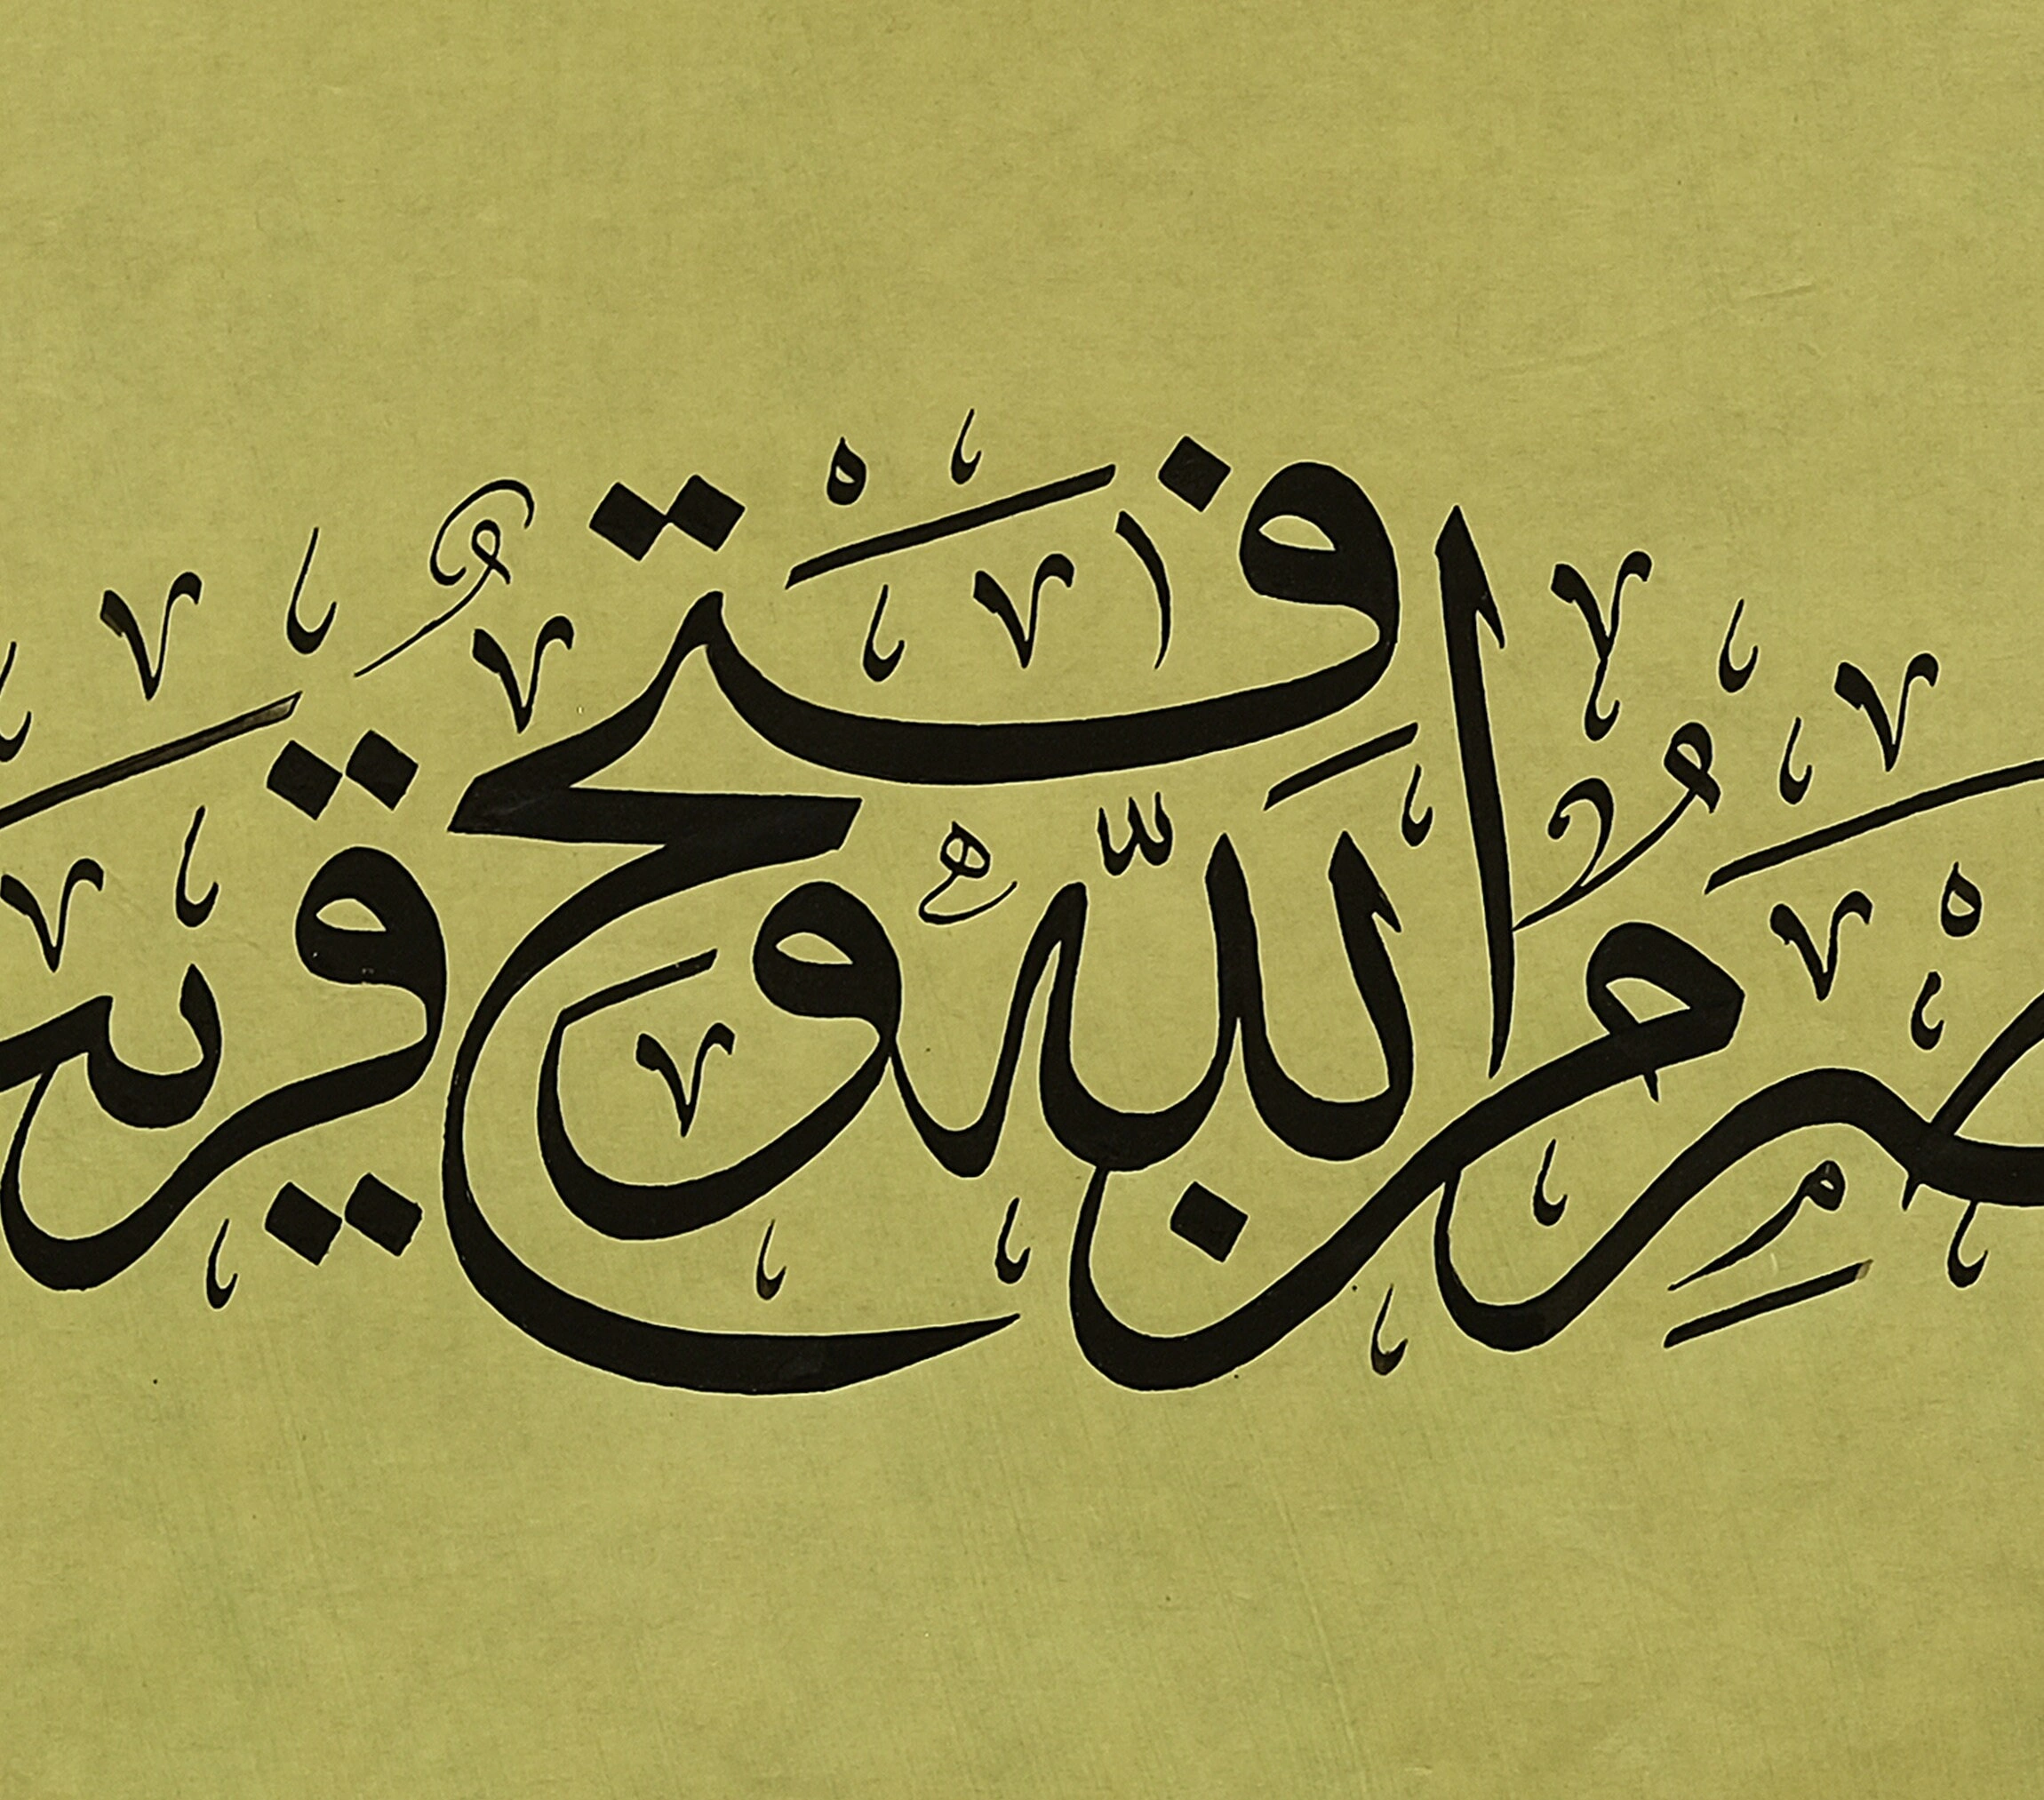 نصر من الله وفتح قريب